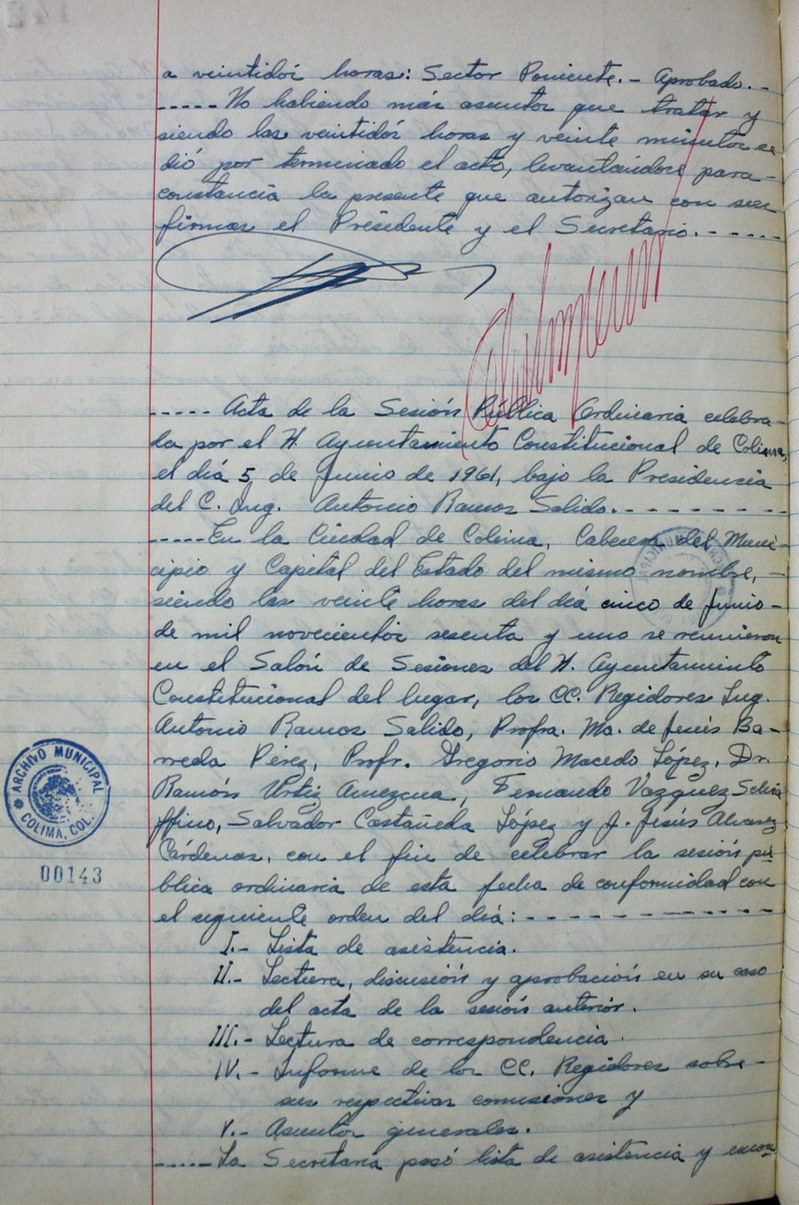 a veintidós horas: Sector Poniente.- Aprobado.-
-----No habiendo más asuntos que tratar y
siendo las veintidós horas y veinte minutos se
dió por terminado el acto, levantándose para-
constancia la presente que autorizan con sus
firmas el Presidente y el Secretario.-----
-----Acta de la Sesión Pública Ordinaria celebra-
da por el H. Ayuntamiento Constitucional de Colima,
el día 5 de Junio de 1961, bajo la Presidencia
del C. Ing. Antonio Ramos Salido.---------
-----En la Ciudad de Colima, Cabecera del Muni-
cipio y Capital del Estado del mismo nombre,-
siendo las veinte horas del día cinco de Junio-
de mil novecientos sesenta y uno se reunieron
en el Salón de Sesiones del H. Ayuntamiento
Constitucional del lugar, los CC. Regidores Ing.
Antonio Ramos Salido, Profra. Ma. de Jesús Ba-
rreda Pérez, Profr. Gregorio Macedo López, Dr.
Ramón Urtiz Amezcua, Fernando Vazquez Schia
ffino, Salvador Castañeda López y J. Jesús Alvarez
Cárdenas, con el fin de celebrar la sesión pú
blica ordinaria de esta fecha de conformidad con
el siguiente orden del día:------------
I.- Lista de asistencia.
II.- Lectura, discusión y aprobación en su caso
del acta de la sesión anterior.
III.- Lectura de correspondencia.
IV.- Informe de los CC. Regidores sobre-
sus respectivas comisiones y
V.- Asuntos generales.
-----La Secretaria pasó lista de asistencia y
ARCHIVO MUNICIPAL
COLIMA, COL.
00143